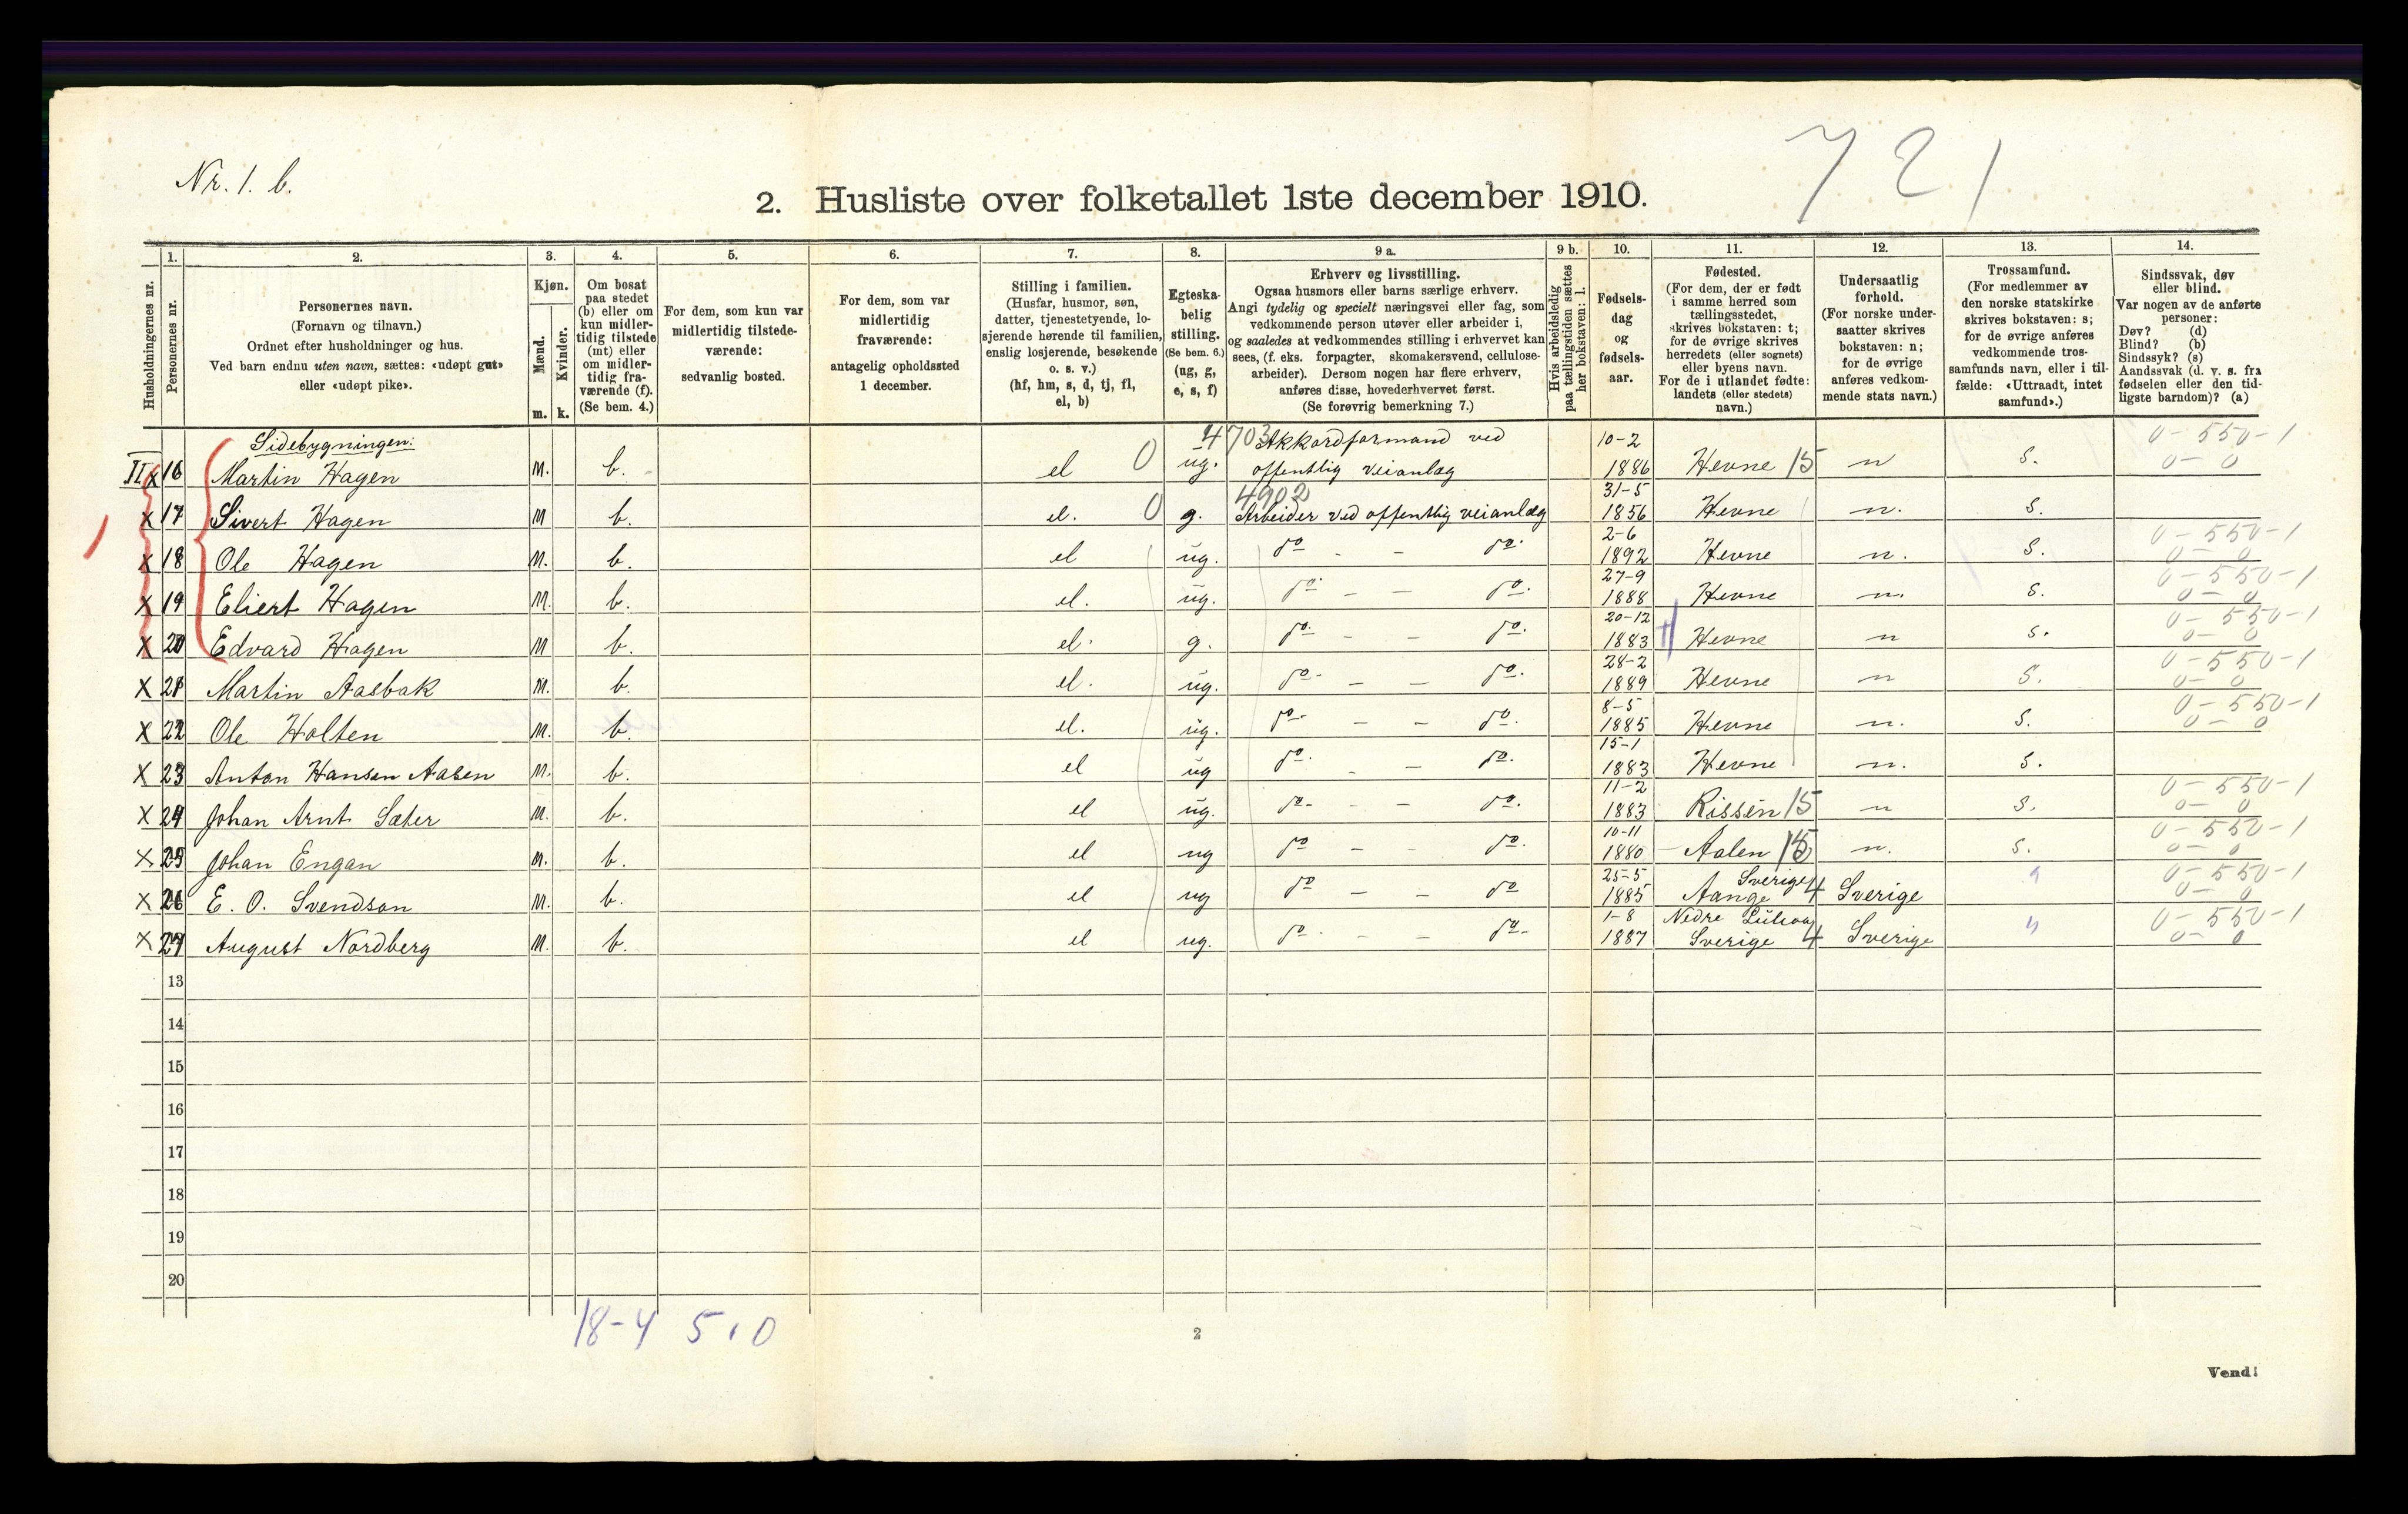 Nr. 1. b.
721
2. Husliste over folketallet 1ste december 1910.
1. 2. 3. 4. 5. 6. 7. 8. 9 a. 9 b. 10. 11. 12. 13. 14.
Husholdningernes nr.
Personernes nr.
Personernes navn.
(Fornavn og tilnavn.)
Ordnet efter husholdninger og hus.
Ved barn endnu uten navn, sættes: «udøpt gut»
eller «udøpt pike».
Kjøn.
Mænd.
m.
Kvinder.
k.
Om bosat
paa stedet
(b) eller om
kun midler-
tidig tilstede
(mt) eller
om midler-
tidig fra-
værende (f).
(Se bem. 4.)
For dem, som kun var
midlertidig tilstede-
værende:
sedvanlig bosted.
For dem, som var
midlertidig
fraværende:
antagelig opholdssted
1 december.
Stilling i familien.
(Husfar, husmor, søn,
datter, tjenestetyende, lo-
sjerende hørende til familien,
enslig losjerende, besøkende
o. s. v.)
(hf, hm, s, d, tj, fl,
el, b)
Egteska-
belig
stilling.
(Se bem. 6.)
(ug, g,
e, s, f)
Erhverv og livsstilling.
Ogsaa husmors eller barns særlige erhverv.
Angi tydelig og specielt næringsvei eller fag, som
vedkommende person utøver eller arbeider i,
og saaledes at vedkommendes stilling i erhvervet kan
sees, (f. eks. forpagter, skomakersvend, cellulose-
arbeider). Dersom nogen har flere erhverv,
anføres disse, hovederhvervet først.
(Se forøvrig bemerkning 7.)
Hvis arbeidsledig
paa tællingstiden sættes
her bokstaven: l.
Fødsels-
dag
og
fødsels-
aar.
Fødested.
(For dem, der er født
i samme herred som
tællingsstedet,
skrives bokstaven: t;
for de øvrige skrives
herredets (eller sognets)
eller byens navn.
For de i utlandet fødte:
landets (eller stedets)
navn.)
Undersaatlig
forhold.
(For norske under-
saatter skrives
bokstaven: n;
for de øvrige
anføres vedkom-
mende stats navn.)
Trossamfund.
(For medlemmer av
den norske statskirke
skrives bokstaven: s;
for de øvrige anføres
vedkommende tros-
samfunds navn, eller i til-
fælde: «Uttraadt, intet
samfund».)
Sindssvak, døv
eller blind.
Var nogen av de anførte
personer:
Døv? (d)
Blind? (b)
Sindssyk? (s)
Aandssvak (d. v. s. fra
fødselen eller den tid-
ligste barndom)? (a)
Sidebygningen: 4703 Akkordformand ved 10-2 0-550-1
II x 16 Martin Hagen M. b. el 0 ug. offentlig veianlæg 1886 Hevne 15 n s. 0-0
4902 31-5
x 17 Sivert Hagen M b. el. 0 g. Arbeider ved offentlig veianlæg 1856 Hevne n. s.
2-6 0-550-1
x 18 Ole Hagen M. b. el ug. do - - do. 1892 Hevne n. s. 0-0
27-9 0-550-1
x 19 Eliert Hagen M. b. el. ug. do. - - do. 1888 Hevne n. s. 0-0
20-12 0-550-1
x 20 Edvard Hagen M b. el. g. do. - - do. 1883 Hevne n s. 0-0
28-2 0-550-1
x 21 Martin Aasbak M. b. el. ug. do. - - do. 1889 Hevne n s. 0-0
8-5 0-550-1
x 22 Ole Holten M. b. el. ug. do. - - do. 1885 Hevne n. s. 0-0
15-1
x 23 Anton Hansen Aasen M. b. el ug do. - - do. 1883 Hevne n. s.
11-2 0-550-1
x 24 Johan Arnt Sæter M. b. el ug. do - - do. 1883 Rissen 15 n s. 0-0
10-11 0-550-1
x 25 Johan Engan M. b. el ug do - - do. 1880 Aalen 15 n. s. 0-0
25-5 Sverige 0-550-1
x 26 E. O. Svendson M. b. el ug do - - do 1885 Aange 4 Sverige 0-0
1-8 Nedre 0-550-1
x 27 August Nordberg M. b. el ug. do - - do 1887 Sverige 4 Sverige 0-0
13
14
15
16
17
18
19
20
18-4 5.0
2
Vend!